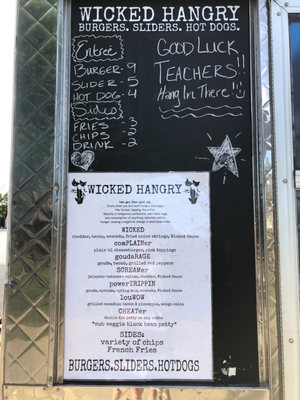 WICKED HANGRY
BURGERS. SLIDERS. HOT DOGS.
Entreé
BURGER - 9
SLIDER - 5
HOT DOG - 4
Sides
FRIES - 3
CHIPS - 2
DRINK - 2
GOOD LUCK
TEACHERS!!
HANG IN THERE!
WICKED HANGRY
WICKED
cheddar, bacon, avocado, fried onion strings, Wicked Sauce
comPLAINer
plain 'ol cheeseburger, pick toppings
goudaRAGE
gouda, bacon, grilled red peppers
SCREAMer
jalapeno-habanero relish, cheddar, Wicked Sauce
powerTRIPPIN
gouda, sprouts, spring mix, avocado, Wicked Sauce
louWOW
grilled canadian bacon & pineapple, mango salsa
CHEATer
double the yonky on any combo
*sub veggie black bean patty*
SIDES:
variety of chips
French Fries
BURGERS.SLIDERS.HOTDOGS